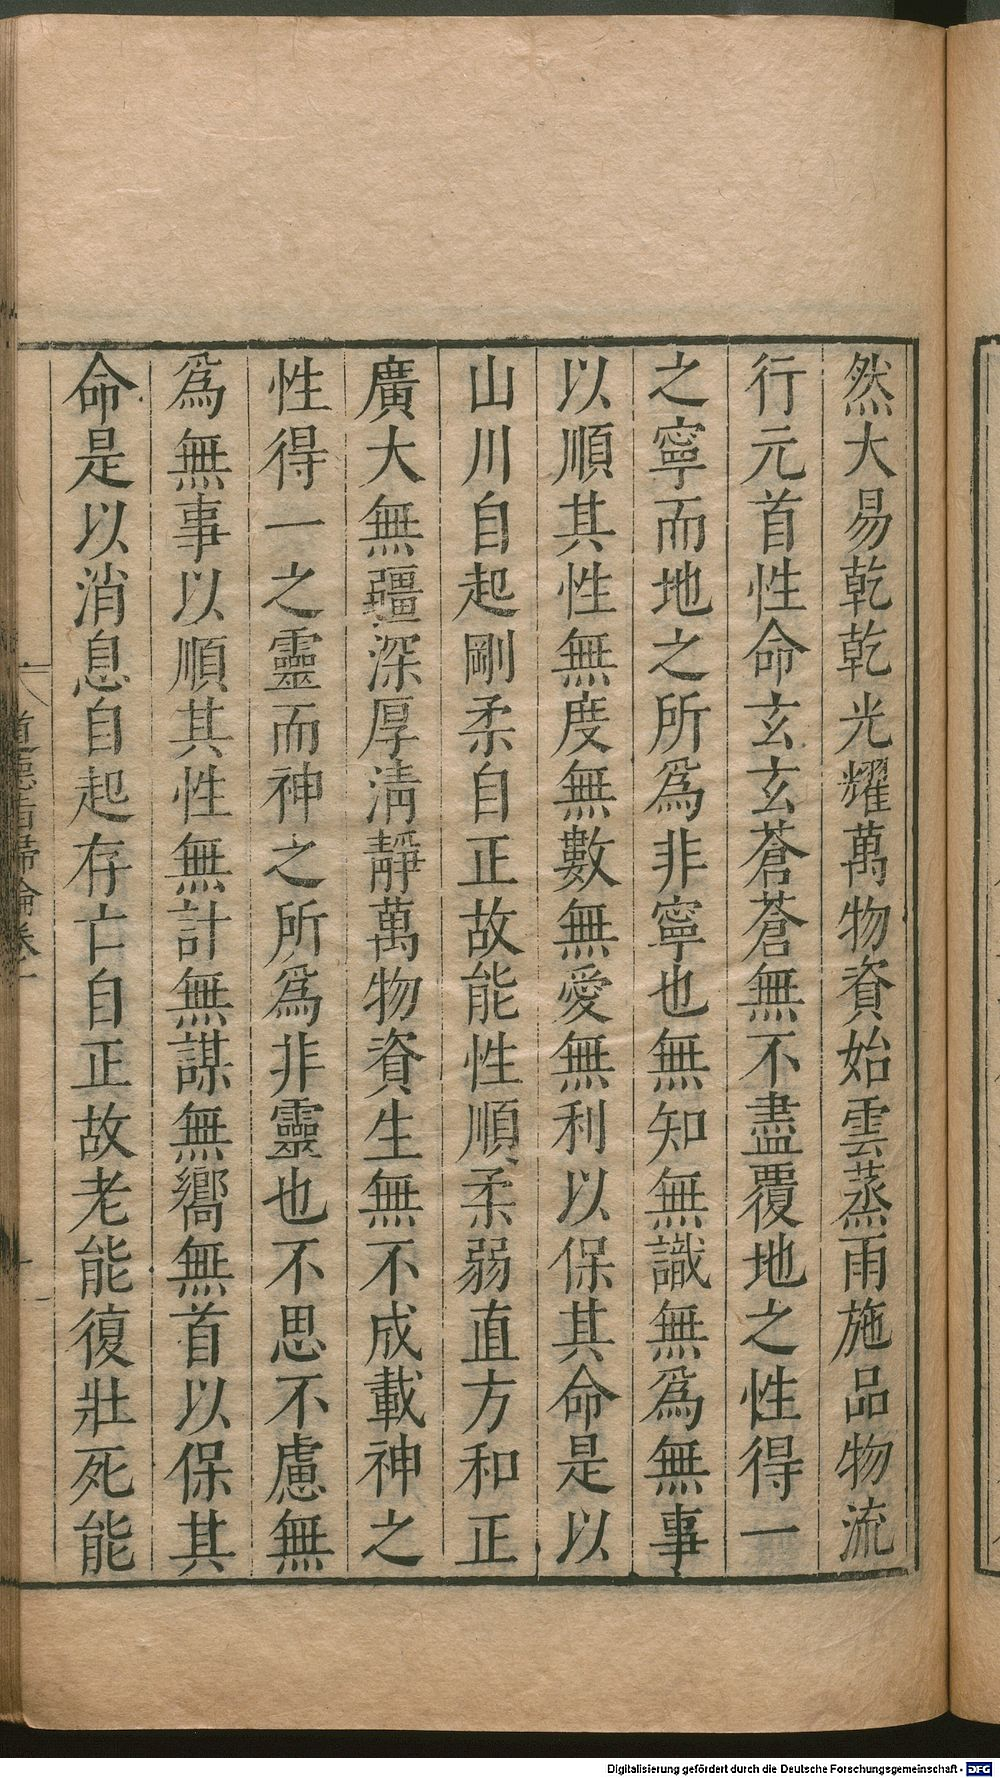 然大易乾乾光耀萬物資始雲蒸雨施品物流
行元首性命玄玄蒼蒼無不盡覆地之性得一
之寧而地之所爲非寧也無知無識無爲無事
以順其性無度無數無愛無利以保其命是以
山川自起剛柔自正故能性順柔弱直方和正
廣大無疆深厚清靜萬物資生無不成載神之
性得一之靈而神之所爲非靈也不思不慮無
爲無事以順其性無計無謀無嚮無首以保其
命是以消息自起存亡自正故老能復壯死能
道德指歸論卷一
Digitalisierung gefördert durch die Deutsche Forschungsgemeinschaft - DFG